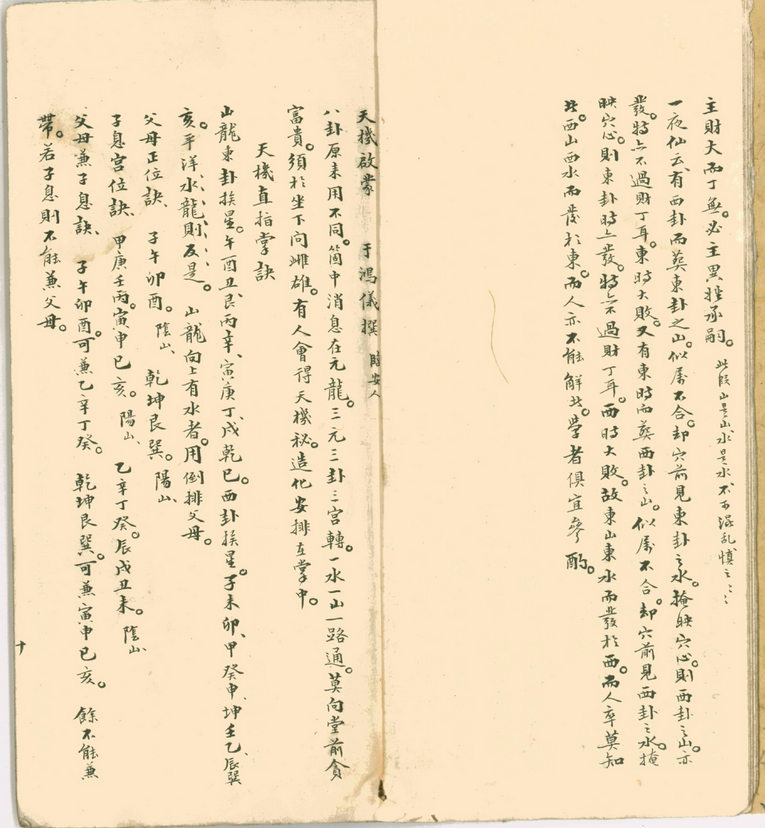 主財大而丁無。必主異姓承嗣。此假山是山水是水不可混乱慎之之之
一夜仙云。有西卦而葬東卦之山。似屬不合。却穴前見東卦之水。掩映穴心。則西卦之山。亦
發。特亦不過財丁耳。東時大敗。又有東時而葬西卦之山。似屬不合。却穴前見西卦之水。掩
映穴心。則東卦時亦發。特亦不過財丁耳。西時大敗。故東山東水而發於西。而人卒莫知
此。西山西水而發於東。而人亦不能解此。學者俱宜參酌。
天機啟蒙 于鴻儀撰 人
八卦原来用不同。箇中消息在元龍。三元三卦三宮轉。一水一山一路通。莫向堂前貪
富貴。須於坐下向雌雄。有人會得天機秘。造化安排在掌中。
天機直指掌訣
山龍東卦挨星。午酉丑艮、丙辛、寅庚丁、戌乾巳。西卦挨星。子未卯、甲癸申、坤壬乙、辰巽
亥。平洋水龍、則反是。山龍向上有水者。用倒排父母。
父母正位訣、 子午卯酉。陰山、 乾坤艮巽。陽山、
子息宮位訣、 甲庚壬丙。寅申巳亥。陽山、 乙辛丁癸。辰戌丑未。陰山、
父母兼子息訣、 子午卯酉。可兼乙辛丁癸。 乾坤艮巽。可兼寅申巳亥。 餘不能兼
帶。若子息則不能兼父母。
十